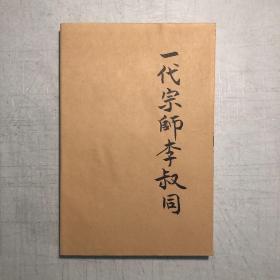 一代宗師李叔同